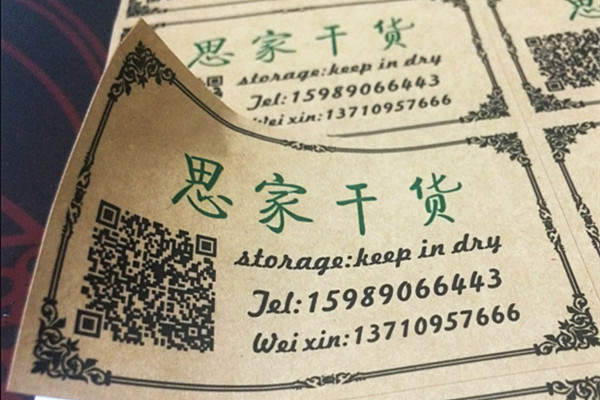 思家干货
storage:keep in dry
Tel:15989066443
Wei xin:13710957666
思家干货
storage:keep in dry
Tel:15989066443
Wei xin:13710957666